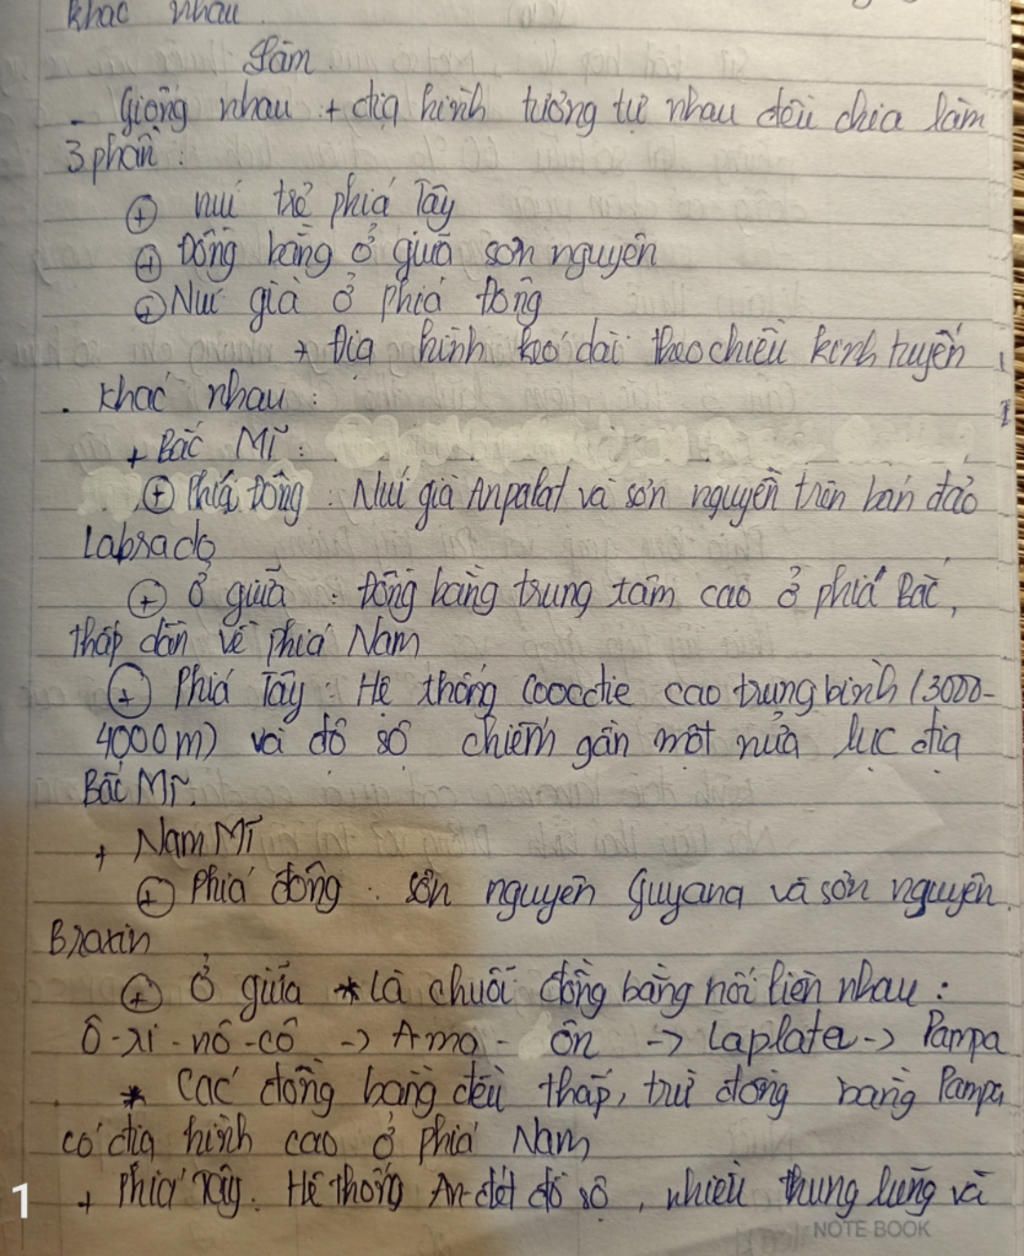 khác nhau
Làm
- Giống nhau + địa hình tương tự nhau đều chia làm
3 phần:
⊕ núi trẻ phía Tây
⊕ Đồng bằng ở giữa sơn nguyên
⊕ Núi già ở phía Đông
+ Địa hình kéo dài theo chiều kinh tuyến
. khác nhau:
+ Bắc Mĩ:
⊕ Phía Đông: Núi già Anpalat và sơn nguyên trên bán đảo
Labrado
⊕ Ở giữa: Đồng bằng trung tâm cao ở phía Bắc,
thấp dần về phía Nam
⊕ Phía Tây: Hệ thống Coocđie cao trung bình (3000-
4000m) và đồ sộ chiếm gần một nửa lục địa
Bắc Mĩ.
+ Nam Mĩ
⊕ Phía đông: sơn nguyên Guyana và sơn nguyên
Braxin
⊕ Ở giữa * là chuỗi đồng bằng nối liền nhau:
Ô-ri-nô-cô -> Ama- ôn -> Laplata -> Pampa
* Các đồng bằng đều thấp, trừ đồng bằng Pampa
có địa hình cao ở phía Nam
+ Phía Tây. Hệ thống An-đét đồ sộ, nhiều thung lũng và
NOTE BOOK
1